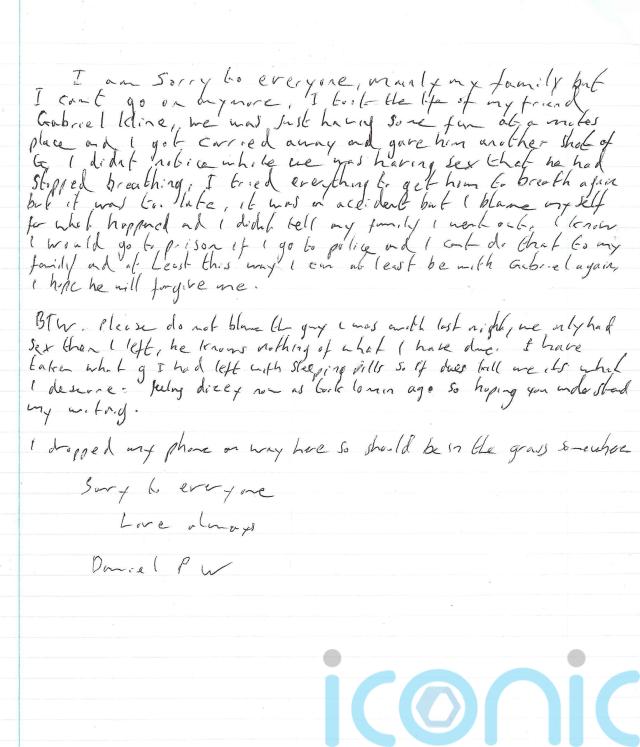 I am sorry to everyone, mainly my family but
I cant go on anymore, I took the life of my friend
Gabriel Kline, we was just having some fun at a mates
place and I got carried away and gave him another shot of
G. I didnt notice while we was having sex that he had
stopped breathing. I tried everything to get him to breath again
but it was too late, it was an accident but I blame myself
for what happened and I didnt tell my family I went out. I know
I would go to prison if I go to police and I cant do that to my
family and at least this way I can at least be with Gabriel again,
I hope he will forgive me.
BTW. Please do not blame the guy I was with last night, we only had
sex then I left, he knows nothing of what I have done. I have
taken what g I had left with sleeping pills so if it does kill me its what
I deserve. feeling dizzy now as took 10 min ago so hoping you understand
my writing.
I dropped my phone on way here so should be in the grass somewhere
Sorry to everyone
Love always
Daniel P W
iconic